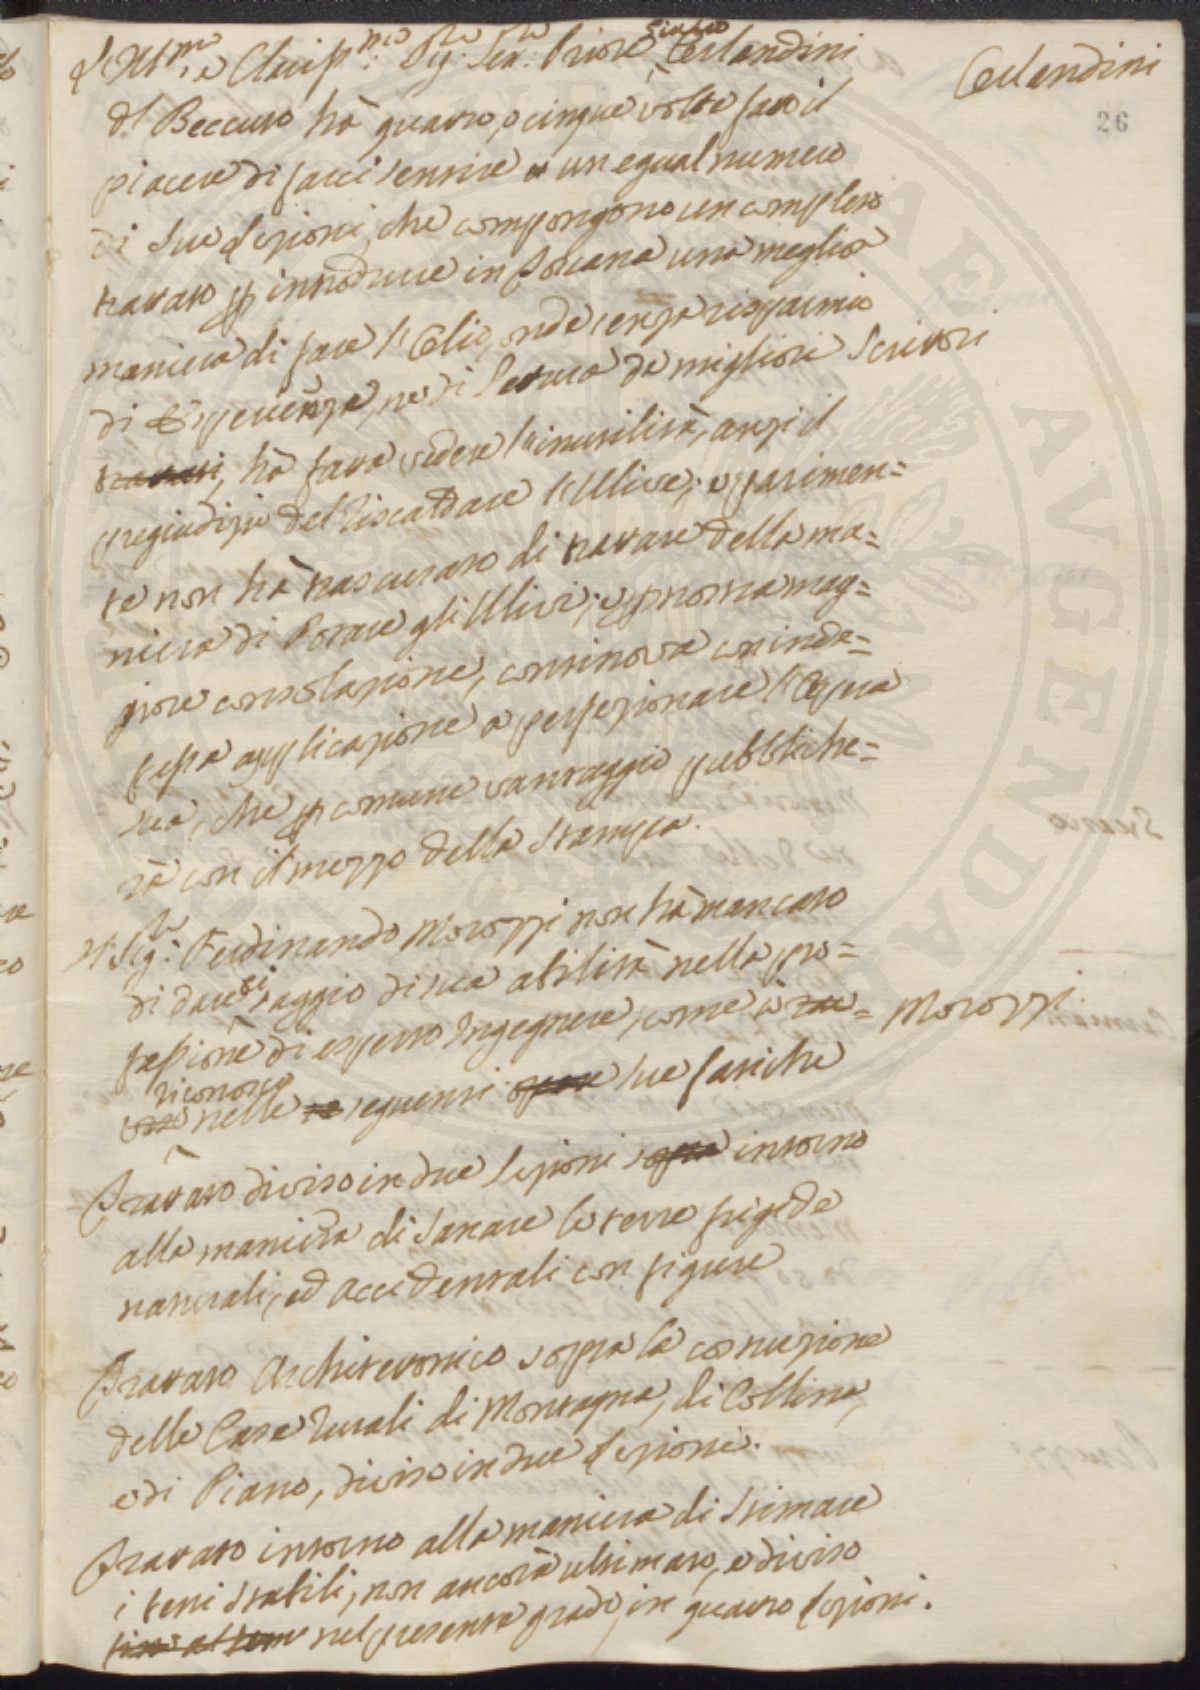 L'Ill.mo e Clariss.mo Sig.re Sen.re Priore Giulio Orlandini
del Beccuto hà quattro, o cinque volte fatto il
piacere di farci sentire un egual numero
di Sue Lezioni, che compongono un completo
trattato per introdurre in Toscana una meglior
maniera di fare l'Olio, onde senza risparmio
di Esperienza, ne di Lettura de migliori Scrittori
trattati, hà fatto vedere l'inutilità, anzi il
pregiudizio del Riscaldare l'Ulive; e parimen=
te non hà trascurato di trattare della ma=
niera di Potare gli Ulivi; e per nostra mag=
giore consolazione, continova con inde=
fessa applicazione a perfezionare l'Opera
sua, che per comune vantaggio pubbliche=
rà con il mezzo della Stampa.
Il Sig.re Ferdinando Morozzi non hà mancato
di darci saggio di sua abilità nella pro=
fessione di esperto Ingegnere, come
riconosce
nelle seguenti sue fatiche
Trattato diviso in due Lezioni sopra intorno
alla maniera di Sanare le terre frigide
naturali, ed accidentali con figure
Trattato Architettonico sopra la costruzione
delle Case Rurali di Montagna, di Collina,
e di Piano, diviso in due Lezioni.
Trattato intorno alla maniera di Stimare
i beni Stabili, non ancora ultimato, e diviso
nel presente grado, in quattro Lezioni.
Orlandini
26
Morozzi